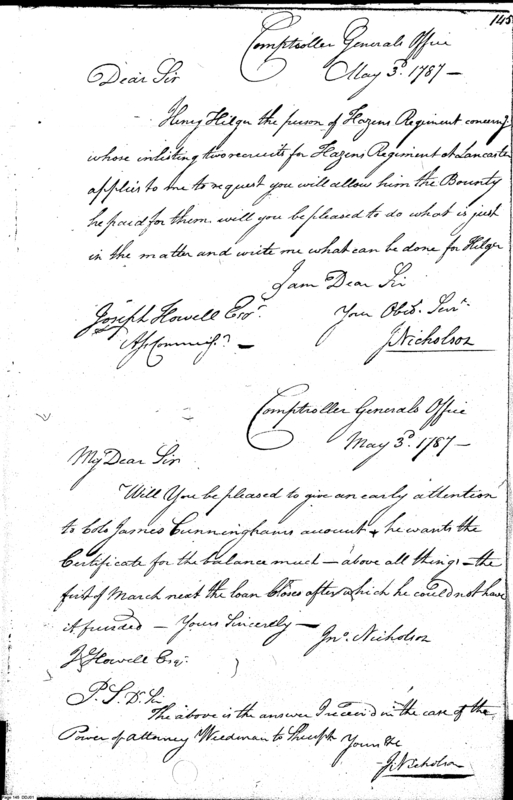 145
Comptroller Generals Office
May 3d. 1787 —
Dear Sir
Henry Hilger the person of Hazens Regiment concerning
whose inlisting two recruits for Hazens Regiment at Lancaster
applies to me to request you will allow him the Bounty
he paid for them. will you be pleased to do what is just
in the matter and write me what can be done for Hilger
I am Dear Sir
Your Obed. Servt.
Joseph Howell Esqr.
JNicholson
Comptroller Generals Office
May 3d. 1787 —
My Dear Sir
Will You be pleased to give an early attention
to Colo James Cunninghams account & he wants the
Certificate for the balance much — above all things — the
first of March next the loan Closes after which he could not have
it funded — Yours Sincerely —
Jno. Nicholson
J Howell Esqr.
P.S. Dr. Sir
The above is the answer I received in the case of the
Power of attorney Weedman to
Yours &c
JNicholson
Page 145